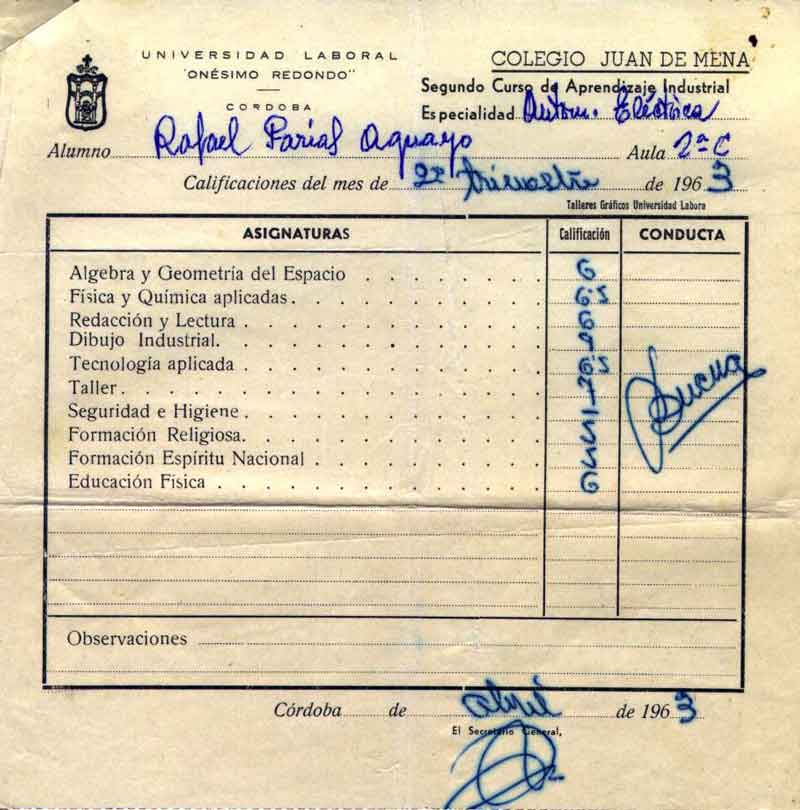 UNIVERSIDAD LABORAL
"ONÉSIMO REDONDO"
CORDOBA
COLEGIO JUAN DE MENA
Segundo Curso de Aprendizaje Industrial
Especialidad Autom. Eléctrica
Alumno Rafael Parias Aguayo Aula 2ª C
Calificaciones del mes de 2º trimestre de 1963
Talleres Gráficos Universidad Labora
ASIGNATURAS Calificación CONDUCTA
Algebra y Geometría del Espacio 6
Física y Química aplicadas 6'5
Redacción y Lectura
Dibujo Industrial.
Tecnología aplicada 6'5
Taller
Seguridad e Higiene
Formación Religiosa. 5
Formación Espíritu Nacional 5
Educación Física 6
Buena
Observaciones
Córdoba de abril de 1963
El Secretario General,